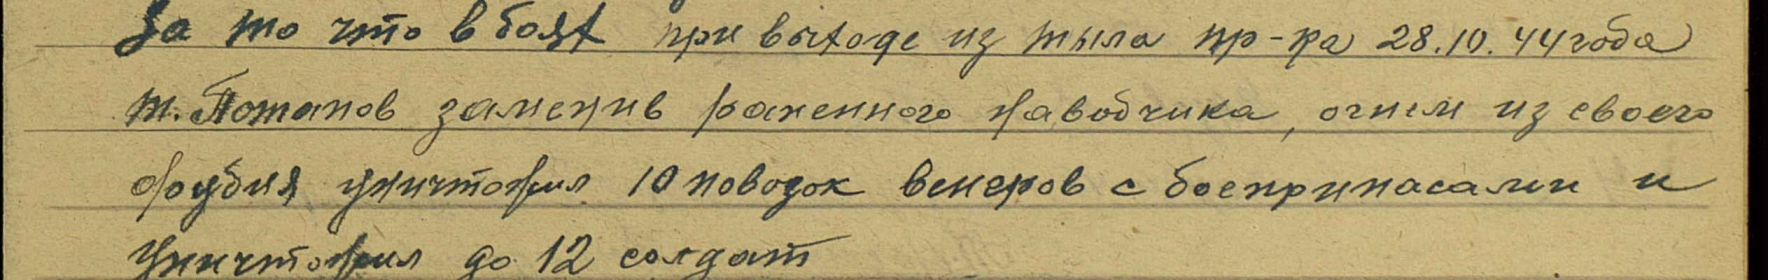 За то что в боях при выходе из тыла пр-ка 28.10.44 года
т. Потапов заменив раненного наводчика, огнем из своего
орудия уничтожил 10 повозок венгров с боеприпасами и
уничтожил до 12 солдат